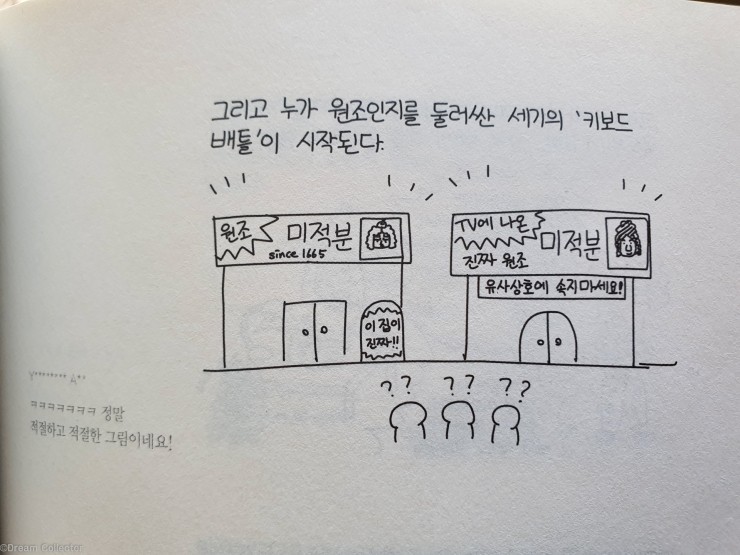 그리고 누가 원조인지를 둘러싼 세기의 '키보드
배틀'이 시작된다.
원조 미적분
since 1665
이 집이
진짜!!
TV에 나온
진짜 원조
미적분
유사상호에 속지마세요!
? ? ? ? ? ?
Y******** A**
ㅋㅋㅋㅋㅋㅋㅋ 정말
적절하고 적절한 그림이네요!
©Dream Collector